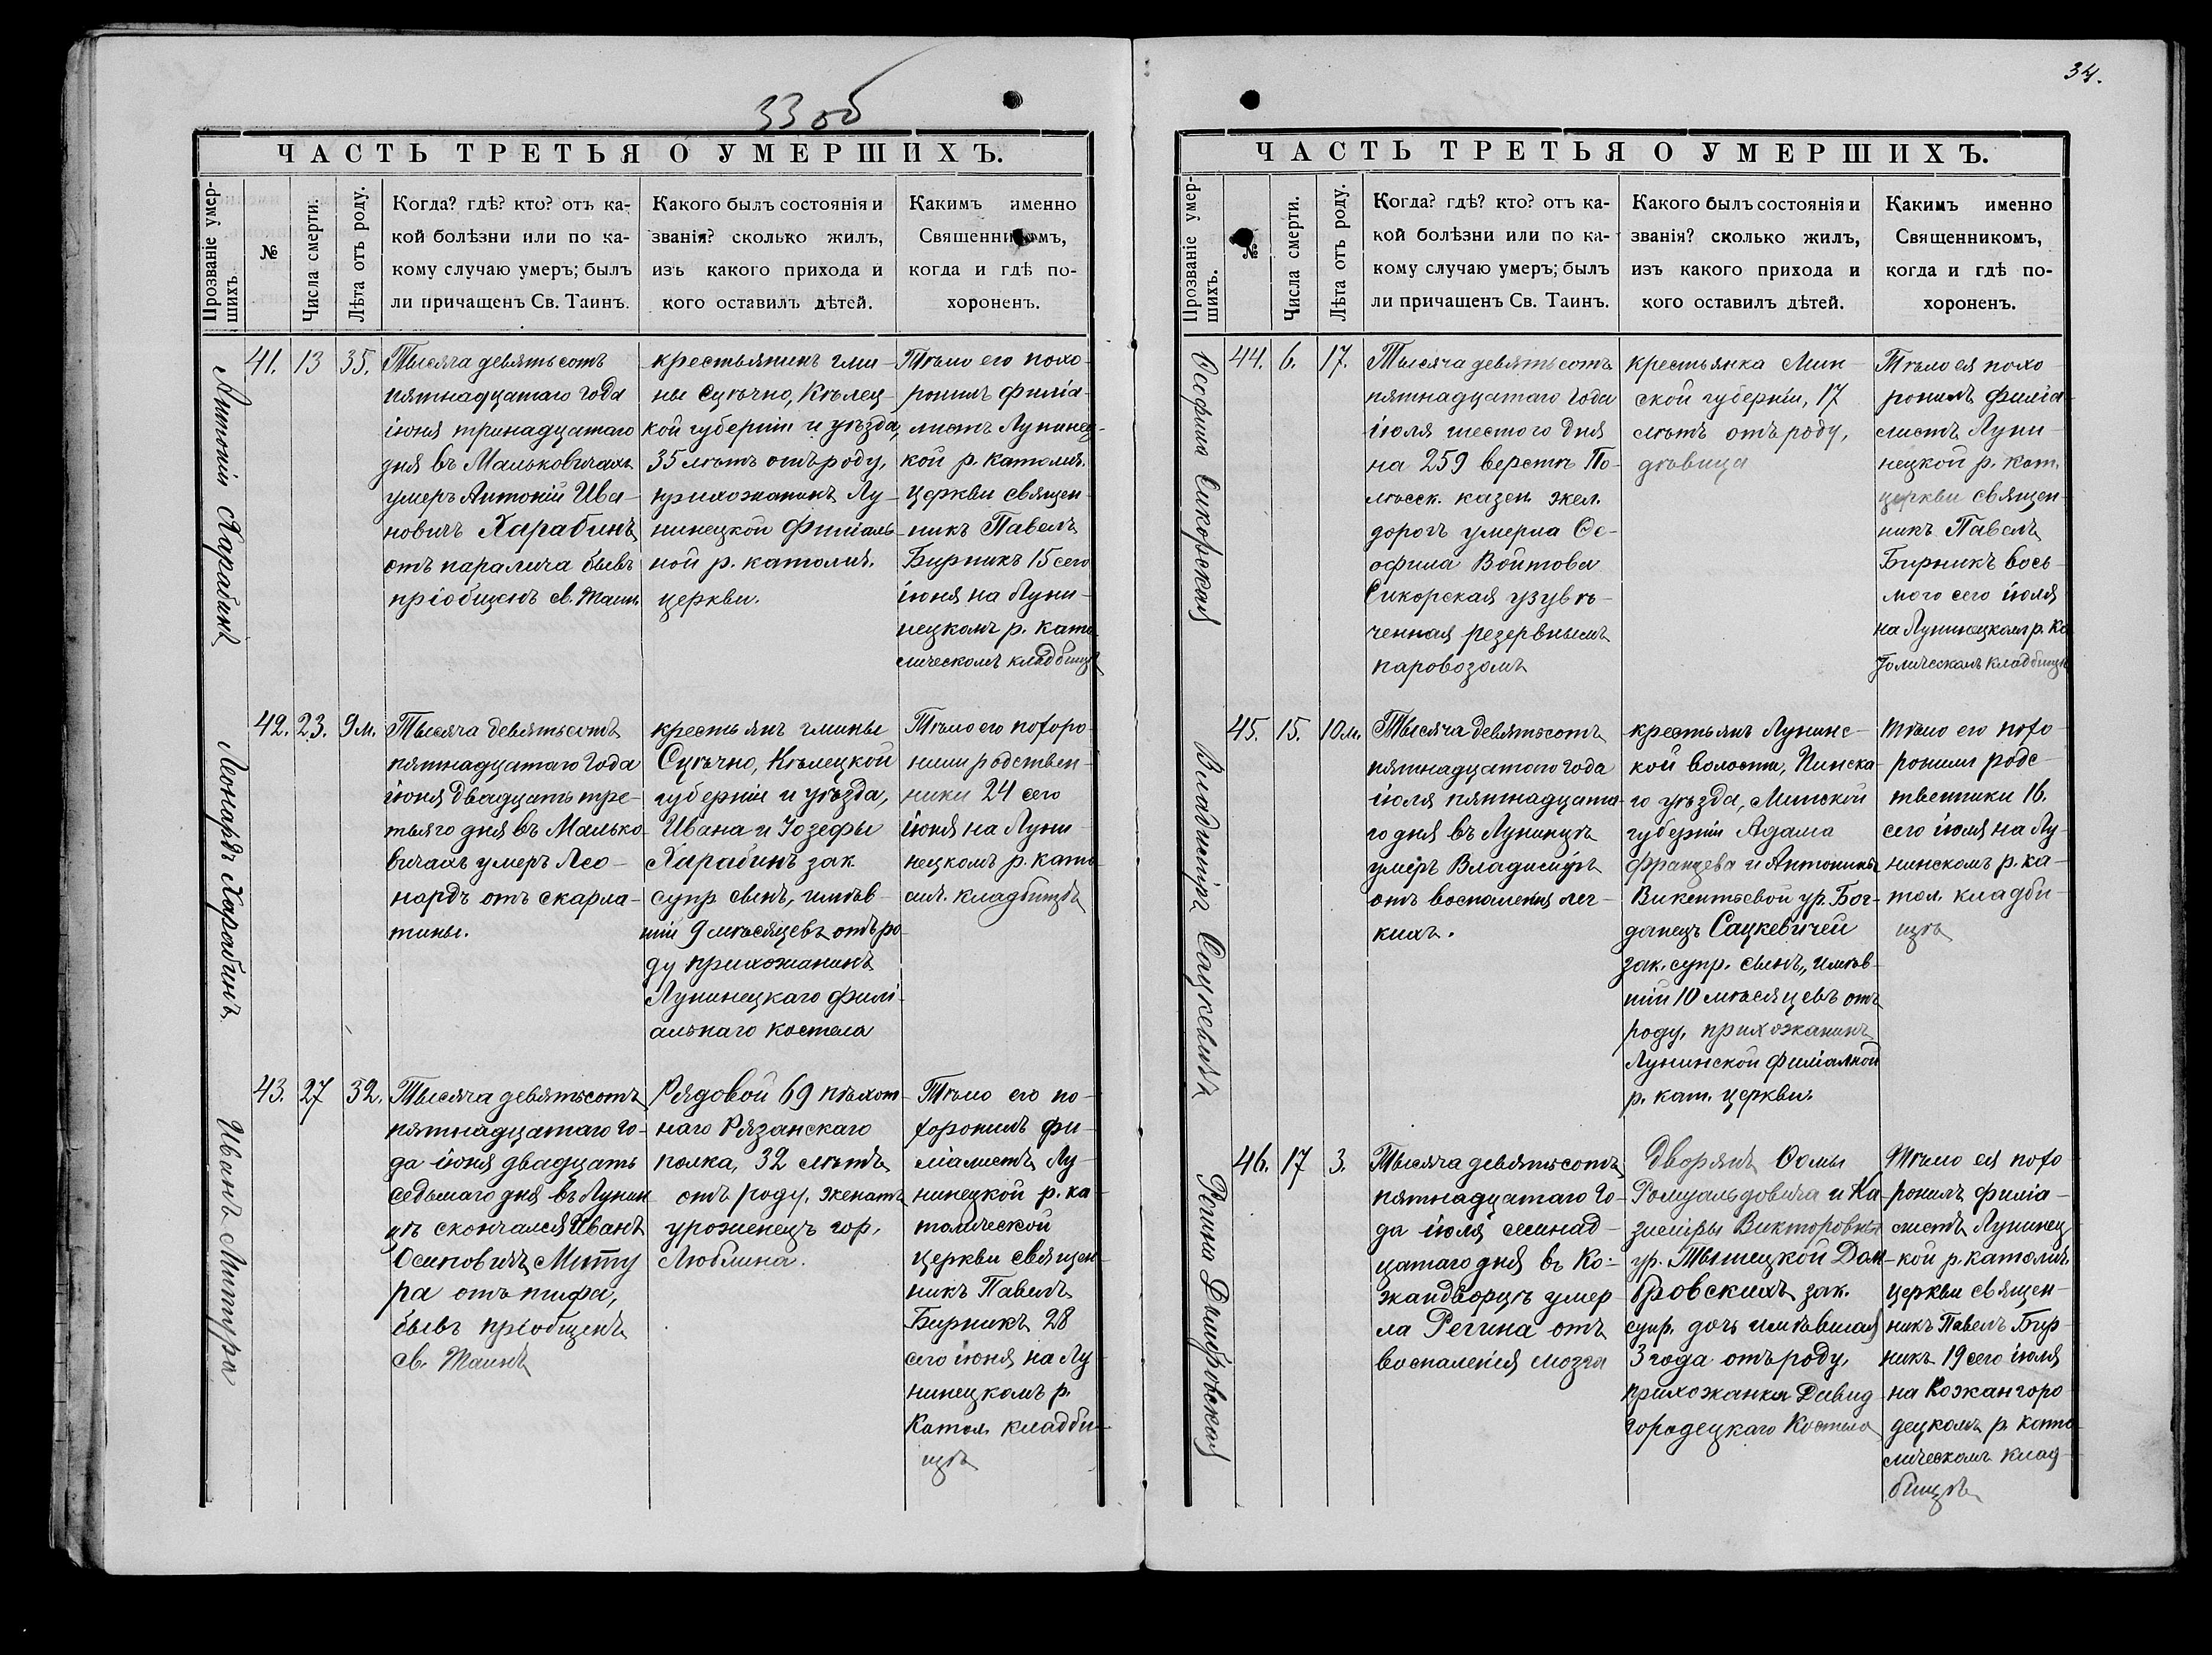 33 об
ЧАСТЬ ТРЕТЬЯ О УМЕРШИХЪ.
Прозваніе умер-
шихъ.
№
Числа смерти.
Лѣта отъ роду.
Когда? гдѣ? кто? отъ ка-
кой болѣзни или по ка-
кому случаю умеръ; былъ
ли причащенъ Св. Таинъ.
Какого былъ состоянія и
званія? сколько жилъ,
изъ какого прихода и
кого оставилъ дѣтей.
Какимъ именно
Священникомъ,
когда и гдѣ по-
хороненъ.
Антоній Харабинъ
41. 13 35.
Тысяча девятьсотъ
пятнадцатаго года
іюня тринадцатаго
дня въ Мальковичахъ
умеръ Антоній Ива-
новичъ Харабинъ
отъ паралича бывъ
пріобщенъ св. Таин.
крестьянинъ гми-
ны Суѣчно, Кѣлец-
кой губерніи и уѣзда,
35 лѣтъ отъ роду,
прихожанинъ Лу-
нинецкой Филіаль-
ной р. католич.
церкви.
Тѣло его похо-
ронилъ филіа-
листъ Лунинец-
кой р. католич.
церкви священ-
никъ Павелъ
Бирникъ 15 сего
іюня на Луни-
нецкомъ р. като-
лическомъ кладбищѣ
Леонардъ Харабинъ
42. 23. 9 м.
Тысяча девятьсотъ
пятнадцатаго года
іюня двадцать тре-
тьяго дня въ Малько-
вичахъ умеръ Лео-
нардъ отъ скарла-
тины.
крестьянъ гмины
Суѣчно, Кѣлецкой
губерніи и уѣзда,
Ивана и Іозефы
Харабинъ зак
супр сынъ, имѣв-
шій 9 мѣсяцевъ отъ ро-
ду прихожанинъ
Лунинецкаго филі-
альнаго костела
Тѣло его похоро-
нили родствен-
ники 24 сего
іюня на Луни-
нецкомъ р. като-
лич. кладбищѣ
Иванъ Митура
43. 27 32.
Тысяча девятьсотъ
пятнадцатаго го-
да іюня двадцать
седьмаго дня въ Лунин
цѣ скончался Иванъ
Осиповичъ Митту
ра отъ тифа,
бывъ пріобщенъ
св. Таинъ
Рядовой 69 пѣхот
наго Рязанскаго
полка, 32 лѣтъ
отъ роду, женатъ
уроженецъ гор.
Люблина.
Тѣло его по-
хоронилъ фи-
ліалистъ Лу-
нинецкой р. ка-
толической
церкви священ
никъ Павелъ
Бирникъ 28
сего іюня на Лу
нинецкомъ р.
Катол. кладби-
щѣ
34.
ЧАСТЬ ТРЕТЬЯ О УМЕРШИХЪ.
Прозваніе умер-
шихъ.
№
Числа смерти.
Лѣта отъ роду.
Когда? гдѣ? кто? отъ ка-
кой болѣзни или по ка-
кому случаю умеръ; былъ
ли причащенъ Св. Таинъ.
Какого былъ состоянія и
званія? сколько жилъ,
изъ какого прихода и
кого оставилъ дѣтей.
Какимъ именно
Священникомъ,
когда и гдѣ по-
хороненъ.
Осфила Сикорская
44. 6. 17.
Тысяча девятьсотъ
пятнадцатаго года
іюля шестого дня
на 259 верстѣ По-
лѣсск. казен. жел.
дорогъ умерла Ос-
офила Войтова
Сикорская узувѣ-
ченная резервнымъ
паровозомъ
крестьянка Мин-
ской губерніи, 17
лѣтъ отъ роду,
дѣвица
Тѣло ея похо
ронилъ филіа-
листъ Луни-
нецкой р. кат.
церкви священ-
никъ Павелъ
Бирникъ вось-
мого сего іюля
на Лунинецкомъ р. Ка
толическомъ кладбищѣ
Владиміръ Сацкевичъ
45. 15. 10 м.
Тысяча девятьсотъ
пятнадцатого года
іюля пятнадцата-
го дня въ Лунинцѣ
умеръ Владиміръ
отъ воспаленія лег-
кихъ.
крестьянъ Лунинс-
кой волости, Пинска-
го уѣзда, Минской
губерніи Адама
Францева и Антонины
Викентьевой ур. Бог-
данецъ Сацкевичей
зак. супр. сынъ, имѣв-
шій 10 мѣсяцевъ отъ
роду, прихожанинъ
Лунинской филіалной
р. кат. церкви.
Тѣло его похо-
ронили родс-
твенники 16.
сего іюля на Лу-
нинскомъ р. ка-
тол. кладби-
щѣ
Регина Домбровская
46. 17 3.
Тысяча девятьсотъ
пятнадцатаго го-
да іюля семнад-
цатаго дня въ Ко-
жандворцѣ умер
ла Регина отъ
воспаленія мозга
Дворянъ Ѳомы
Ромуальдовича и Ка-
зиміры Викторовны
ур. Тышецкой Дом-
бровскихъ зак.
супр. дочь имѣвшая
3 года отъ роду,
прихожанка Давид
городецкаго Костела
Тѣло ея похо
ронилъ филіа-
листъ Лунинец
кой р. католич.
церкви священ-
никъ Павелъ Бир-
никъ 19 сего іюля
на Кожангоро
децкомъ р. като
лическомъ клад-
бищѣ